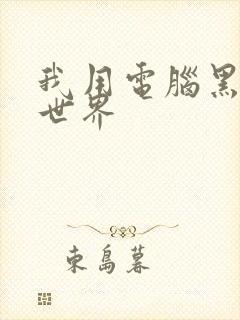 我用電腦黑
世界
東島暮